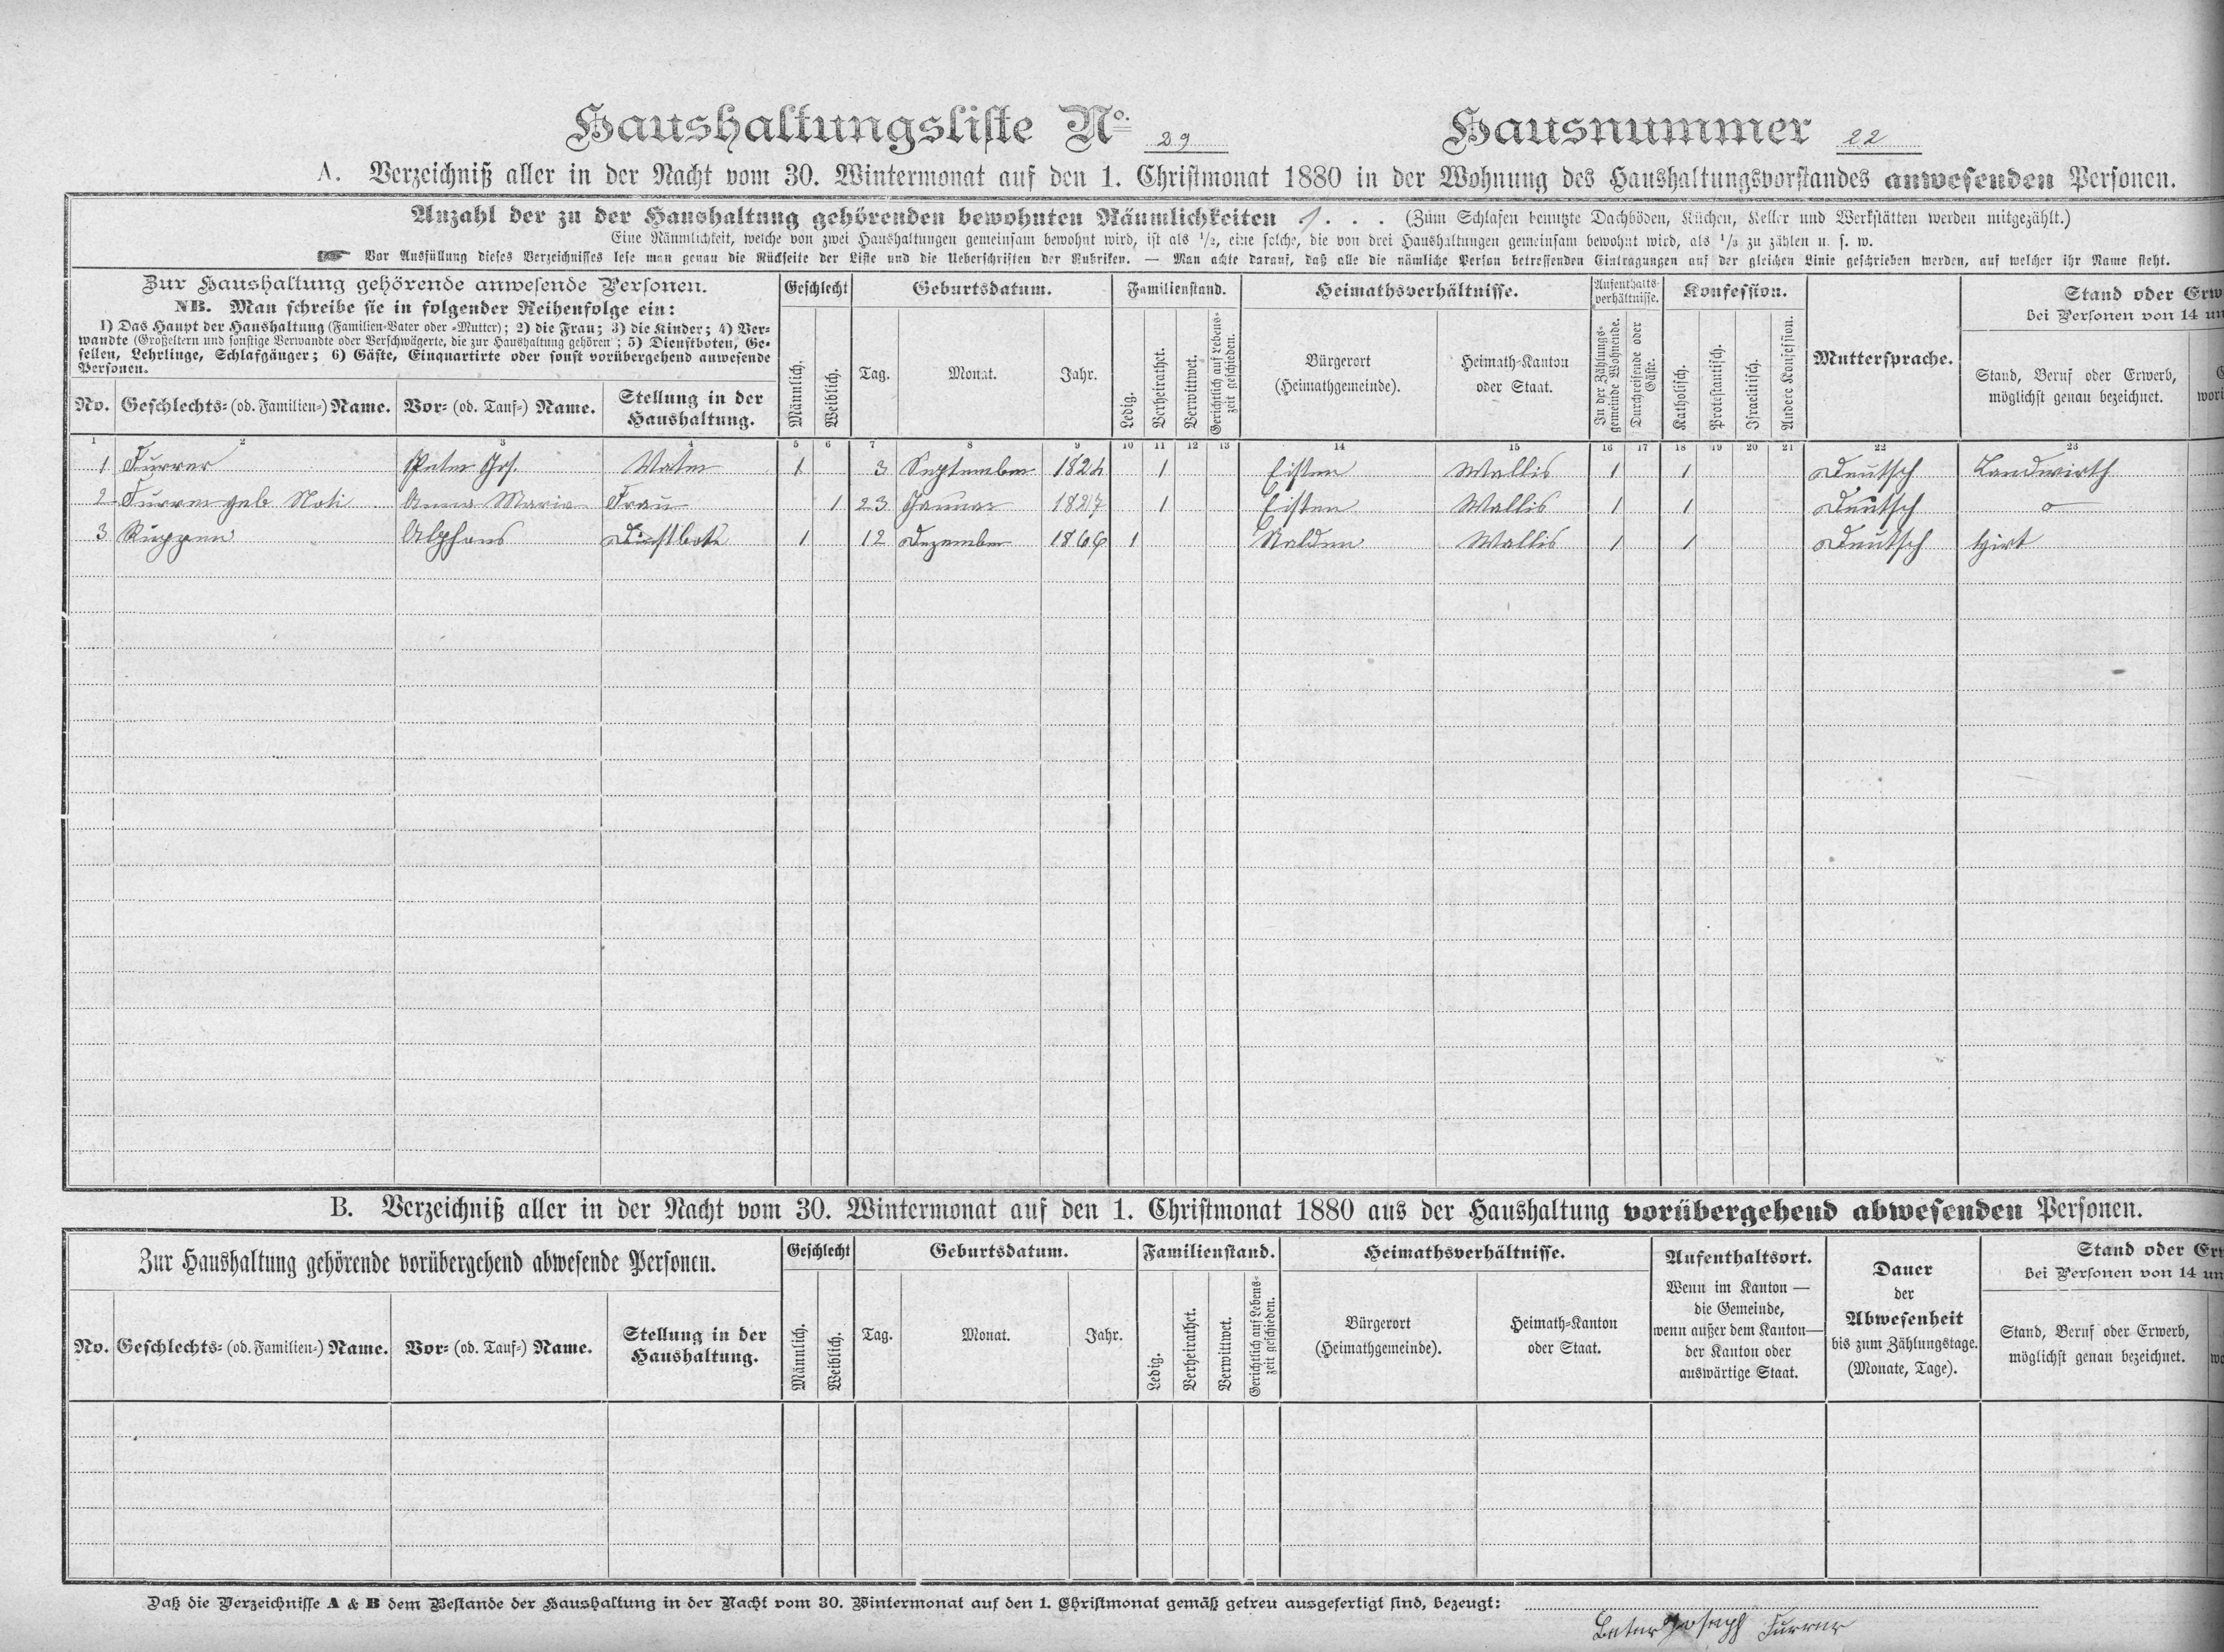 Haushaltungsliste No. 29 Hausnummer 22
A. Verzeichniß aller in der Nacht vom 30. Wintermonat auf den 1. Christmonat 1880 in der Wohnung des Haushaltungsvorstandes anwesenden Personen.
Anzahl der zu der Haushaltung gehörenden bewohnten Räumlichkeiten 1 . . . (Zum Schlafen benutzte Dachböden, Küchen, Keller und Werkstätten werden mitgezählt.)
Eine Räumlichkeit, welche von zwei Haushaltungen gemeinsam bewohnt wird, ist als 1/2, eine solche, die von drei Haushaltungen gemeinsam bewohnt wird, als 1/3 zu zählen u. s. w.
☛ Vor Ausfüllung dieses Verzeichnisses lese man genau die Rückseite der Liste und die Ueberschriften der Rubriken. — Man achte darauf, daß alle die nämliche Person betreffenden Eintragungen auf der gleichen Linie geschrieben werden, auf welcher ihr Name steht.
Zur Haushaltung gehörende anwesende Personen.
NB. Man schreibe sie in folgender Reihenfolge ein:
1) Das Haupt der Haushaltung (Familien-Vater oder -Mutter); 2) die Frau; 3) die Kinder; 4) Ver-
wandte (Großeltern und sonstige Verwandte oder Verschwägerte, die zur Haushaltung gehören); 5) Dienstboten, Ge-
sellen, Lehrlinge, Schlafgänger; 6) Gäste, Einquartirte oder sonst vorübergehend anwesende
Personen.
No. Geschlechts- (od. Familien-) Name. Vor- (od. Tauf-) Name. Stellung in der Haushaltung.
Geschlecht
Männlich. Weiblich.
Geburtsdatum.
Tag. Monat. Jahr.
Familienstand.
Ledig. Verheirathet. Verwittwet. Gerichtlich auf Lebens-
zeit geschieden.
Heimathsverhältnisse.
Bürgerort
(Heimathgemeinde).
Heimath-Kanton
oder Staat.
Aufenthalts-
verhältnisse.
In der Zählungs-
gemeinde Wohnende.
Durchreisende oder
Gäste.
Konfession.
Katholisch. Protestantisch. Israelitisch. Andere Konfession.
Muttersprache.
Stand oder Erw
bei Personen von 14 un
Stand, Beruf oder Erwerb,
möglichst genau bezeichnet.
1 2 3 4 5 6 7 8 9 10 11 12 13 14 15 16 17 18 19 20 21 22 23
1 Furrer Peter Jos. Vater 1 3 September 1824 1 Eisten Wallis 1 1 Deutsch Landwirth
2 Furrer geb Noti Anna Maria Frau 1 23 Januar 1827 1 Eisten Wallis 1 1 Deutsch o
3 Ruppen Alphons Dienstbote 1 12 Dezember 1866 1 Stalden Wallis 1 1 Deutsch Hirt
B. Verzeichniß aller in der Nacht vom 30. Wintermonat auf den 1. Christmonat 1880 aus der Haushaltung vorübergehend abwesenden Personen.
Zur Haushaltung gehörende vorübergehend abwesende Personen.
No. Geschlechts- (od. Familien-) Name. Vor- (od. Tauf-) Name. Stellung in der Haushaltung.
Geschlecht
Männlich. Weiblich.
Geburtsdatum.
Tag. Monat. Jahr.
Familienstand.
Ledig. Verheirathet. Verwittwet. Gerichtlich auf Lebens-
zeit geschieden.
Heimathsverhältnisse.
Bürgerort
(Heimathgemeinde).
Heimath-Kanton
oder Staat.
Aufenthaltsort.
Wenn im Kanton —
die Gemeinde,
wenn außer dem Kanton —
der Kanton oder
auswärtige Staat.
Dauer
der
Abwesenheit
bis zum Zählungstage.
(Monate, Tage).
Stand oder Er
bei Personen von 14 un
Stand, Beruf oder Erwerb,
möglichst genau bezeichnet.
Daß die Verzeichnisse A & B dem Bestande der Haushaltung in der Nacht vom 30. Wintermonat auf den 1. Christmonat gemäß getreu ausgefertigt sind, bezeugt:
Peter Joseph Furrer